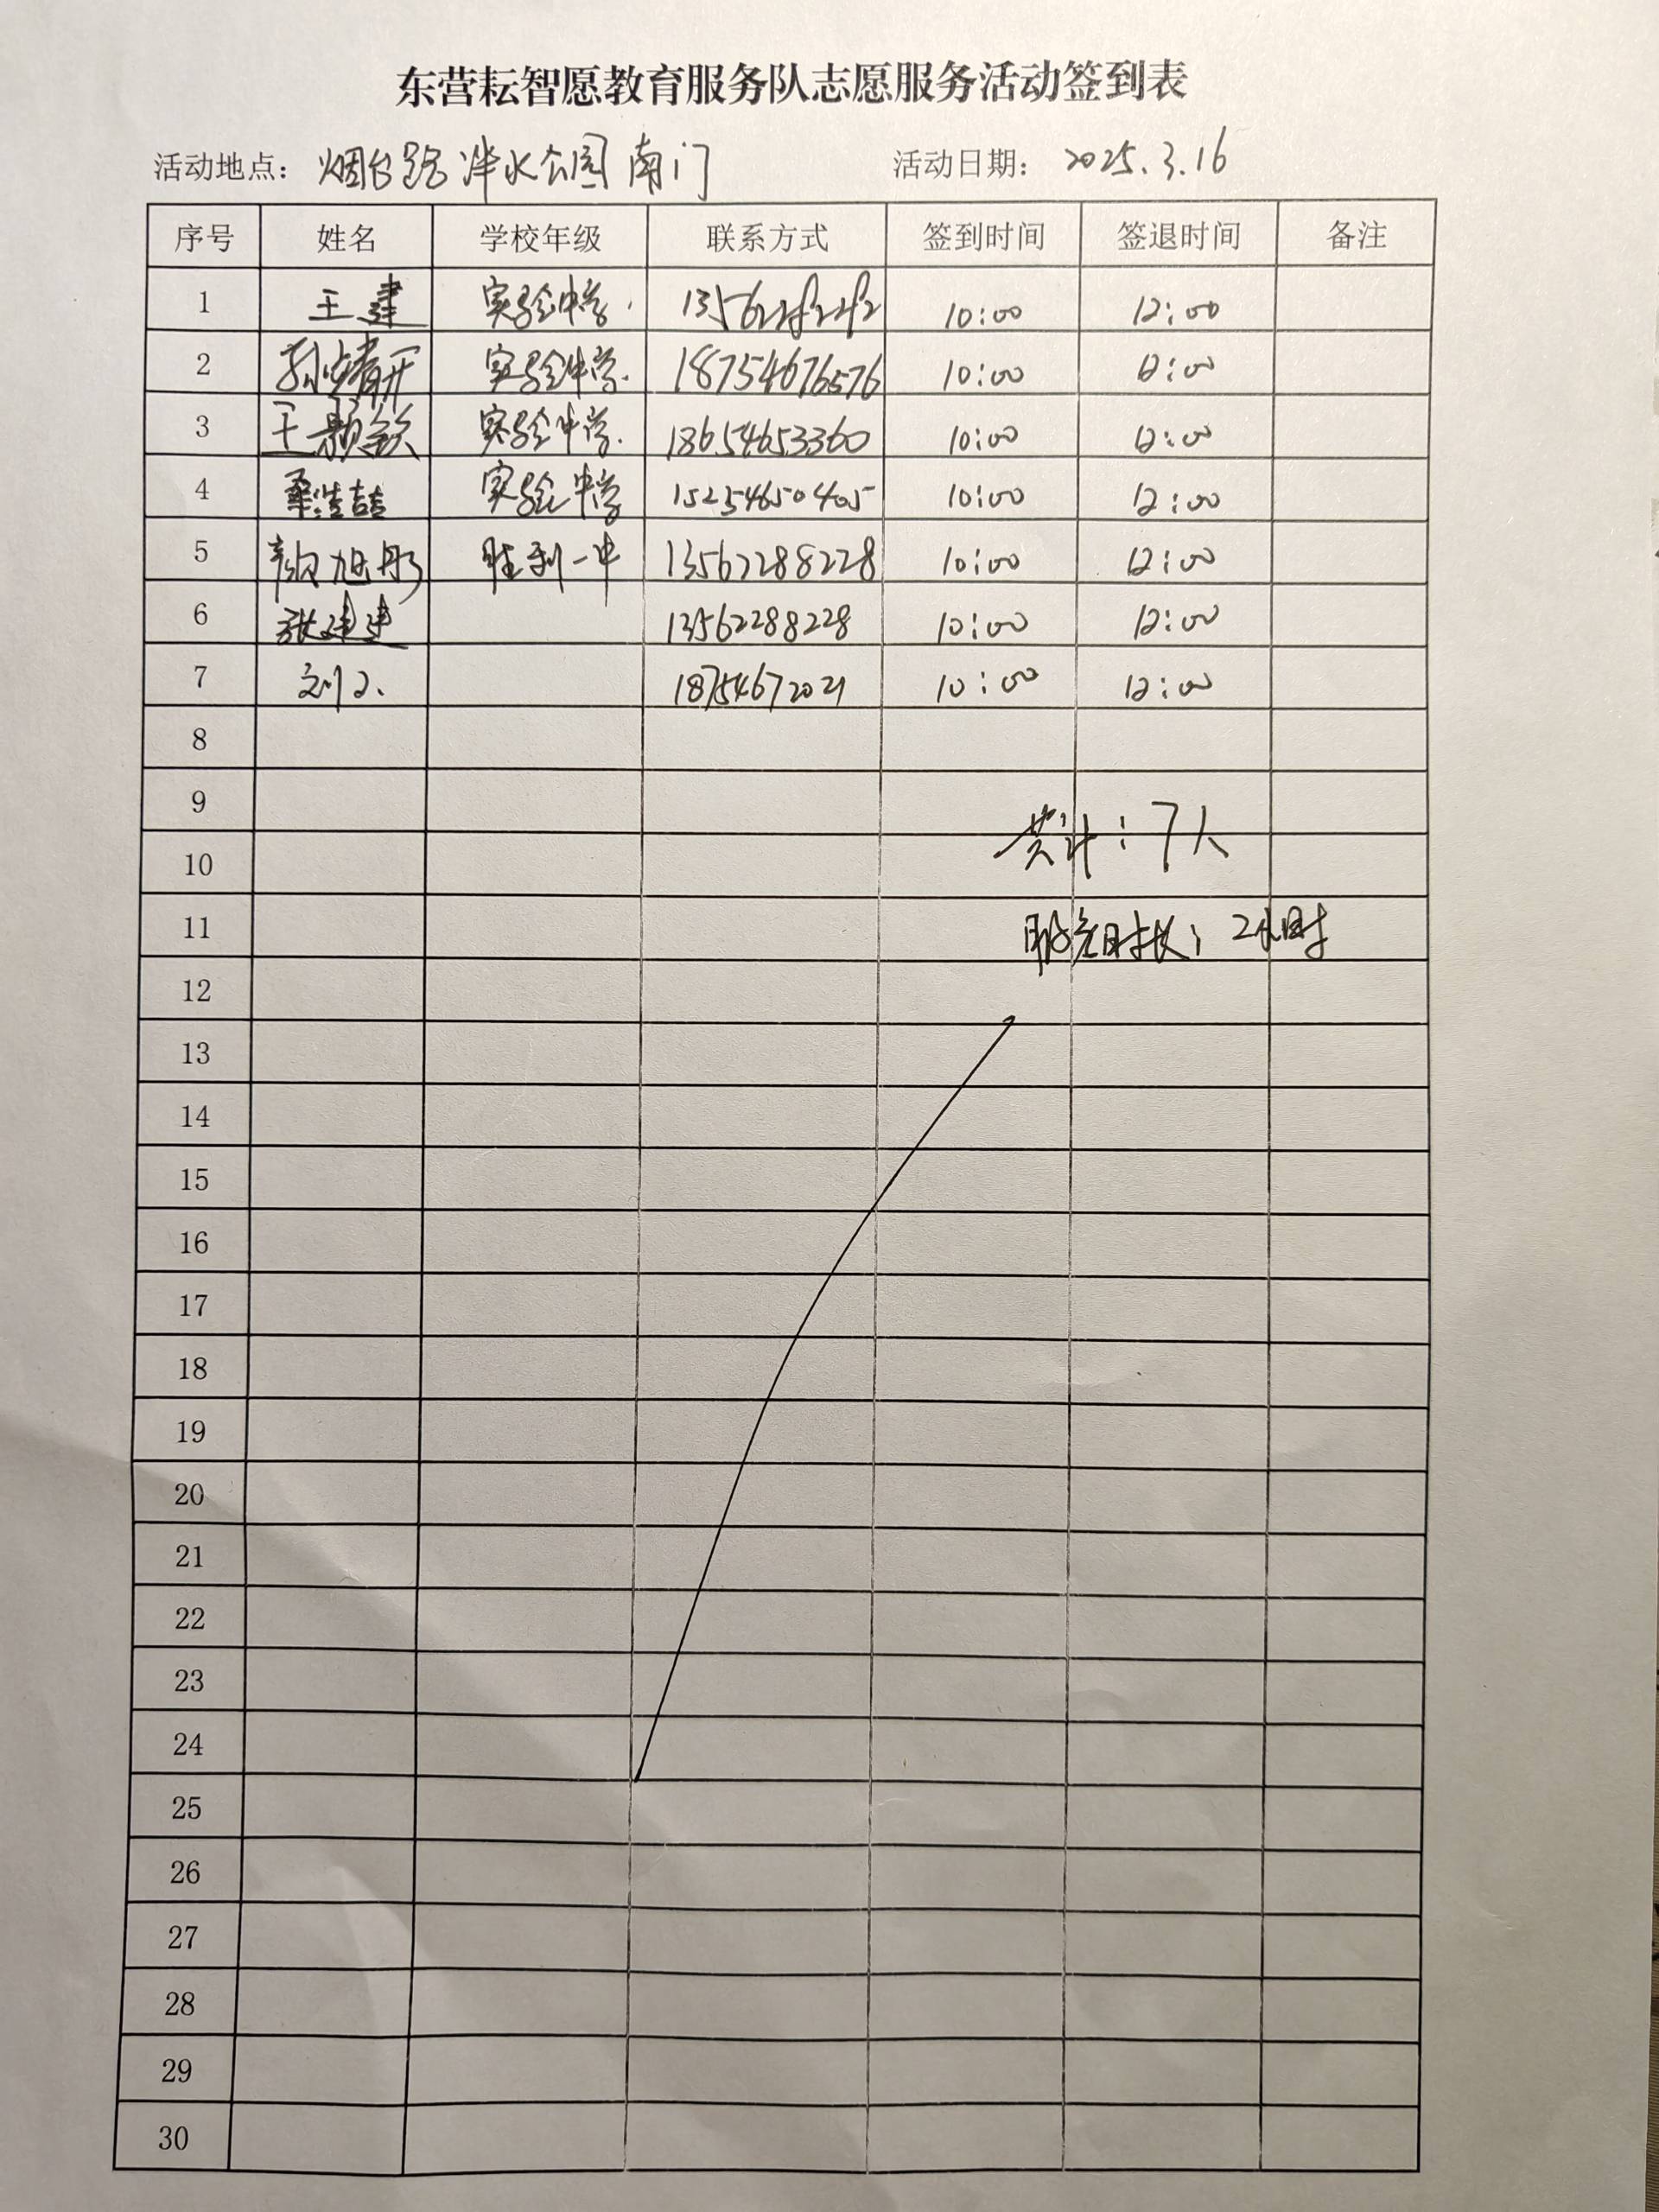 东营耘智愿教育服务队志愿服务活动签到表
活动地点： 烟台路泮水公园南门 活动日期： 2025.3.16
序号 姓名 学校年级 联系方式 签到时间 签退时间 备注
1 王建 实验中学. 10:00 12:00
2 孙婧开 实验中学. 18754676576 10:00 12:00
3 王颢钦 实验中学. 18654653360 10:00 12:00
4 实验中学 15254650405 10:00 12:00
5 颜旭彤 胜利一中 13562288228 10:00 12:00
6 张建建 13562288228 10:00 12:00
7 18754672021 10:00 12:00
8
9
共计：7人
10
11 服务时长：2小时
12
13
14
15
16
17
18
19
20
21
22
23
24
25
26
27
28
29
30